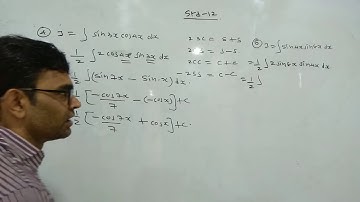 Std-12
④ I = ∫ sin3x cos4x dx
1/2 ∫ 2 cos4x sin3x dx
1/2 ∫ (sin7x − sinx) dx
1/2 [ −cos7x/7 − (−cosx) ] + c
1/2 [ −cos7x/7 + cosx ] + c
2SC = S+S
= S−S
2CC = C+C
−2SS = C−C
I = ∫ sin4x sin6x dx
= 1/2 ∫ 2 sin6x sin4x dx
= 1/2 ∫